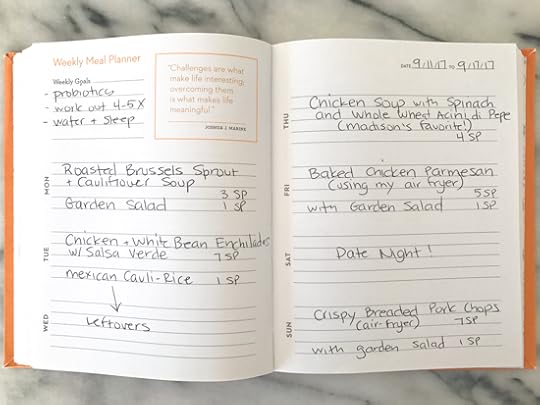 Weekly Meal Planner
Weekly Goals
- probiotics
- work out 4-5X
- water + sleep
"Challenges are what
make life interesting;
overcoming them
is what makes life
meaningful."
JOSHUA J. MARINE
MON
Roasted Brussels Sprout
+ Cauliflower Soup
3 SP
Garden Salad 1 SP
TUE
Chicken + White Bean Enchiladas
w/ Salsa Verde 7 SP
mexican Cauli-Rice 1 SP
WED
Leftovers
DATE 9/11/17 TO 9/17/17
THU
Chicken Soup with Spinach
and Whole Wheat Acini di Pepe
(Madison's Favorite!)
4 SP
FRI
Baked Chicken Parmesan
(using my air fryer)
5 SP
with Garden Salad 1 SP
SAT
Date Night!
SUN
Crispy Breaded Pork Chops
(air-fryer) 7 SP
with garden salad 1 SP